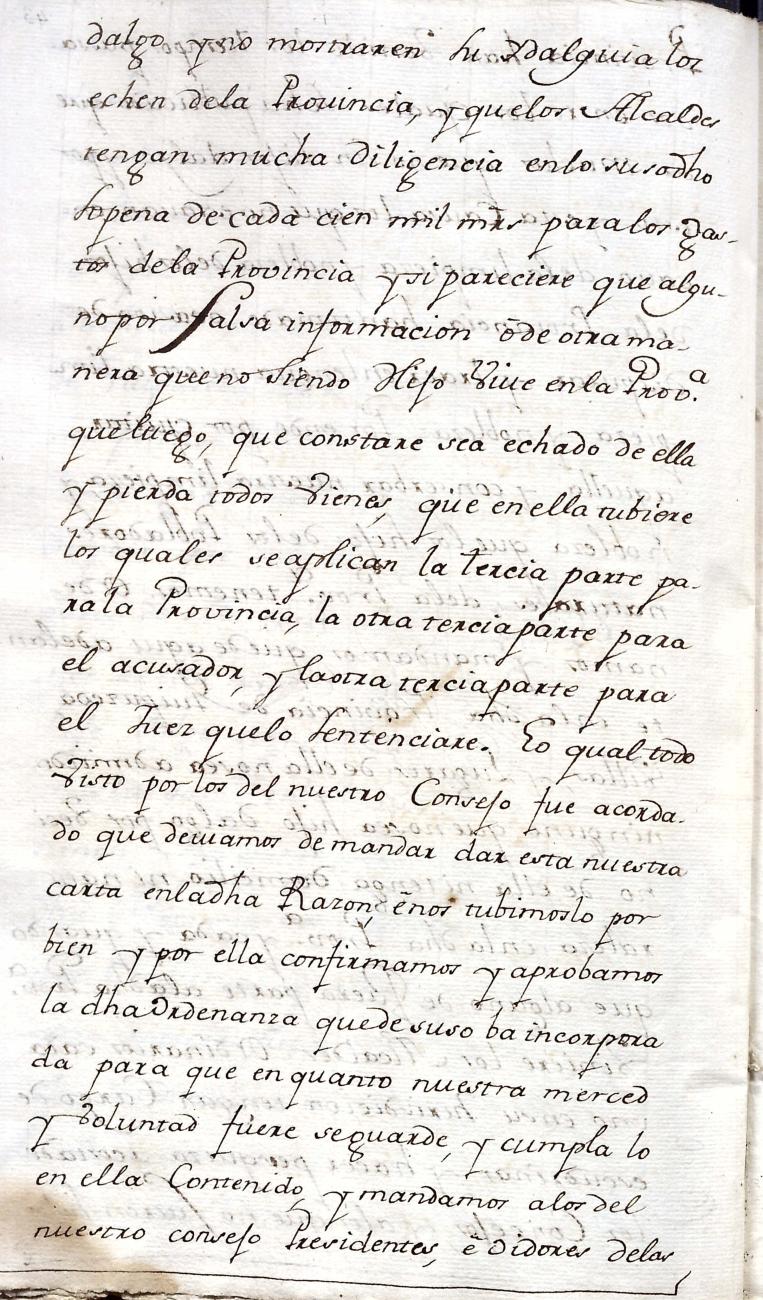 dalgo, y no mostraren su Ydalguia los
echen dela Provincia, y quelos Alcaldes
tengan mucha Diligencia enlo susodho
sopena de cada cien mil mrs para los gas-
tos dela Provincia y si pareciere que algu-
no por falsa informacion ò de otra ma-
nera que no siendo Hijo Vive en la Prov.a
que luego, que constare sea echado de ella
y pierda todos vienes, que en ella tubiere
los quales se aplican la tercia parte pa-
rala Provincia, la otra tercia parte para
el acusador, y la otra tercia parte para
el Juez quelo sentenciare. Lo qual todo
Visto por los del nuestro Consejo fue acorda-
do que deviamos de mandar dar esta nuestra
carta enladha Razon, è nos tubimoslo por
bien y por ella confirmamos y aprobamos
la dha Ordenanza quede suso ba incorpora
da para que en quanto nuestra merced
y Voluntad fuere seguarde, y cumpla lo
en ella Contenido, y mandamos alos del
nuestro consejo Presidentes, è Oidores delas